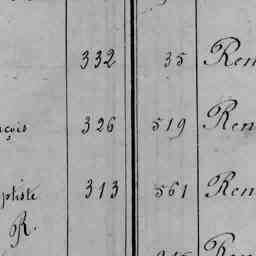 332 35 Ren
nçois 326 519 Ren
ptiste 313 561 Ren
R.
Ren